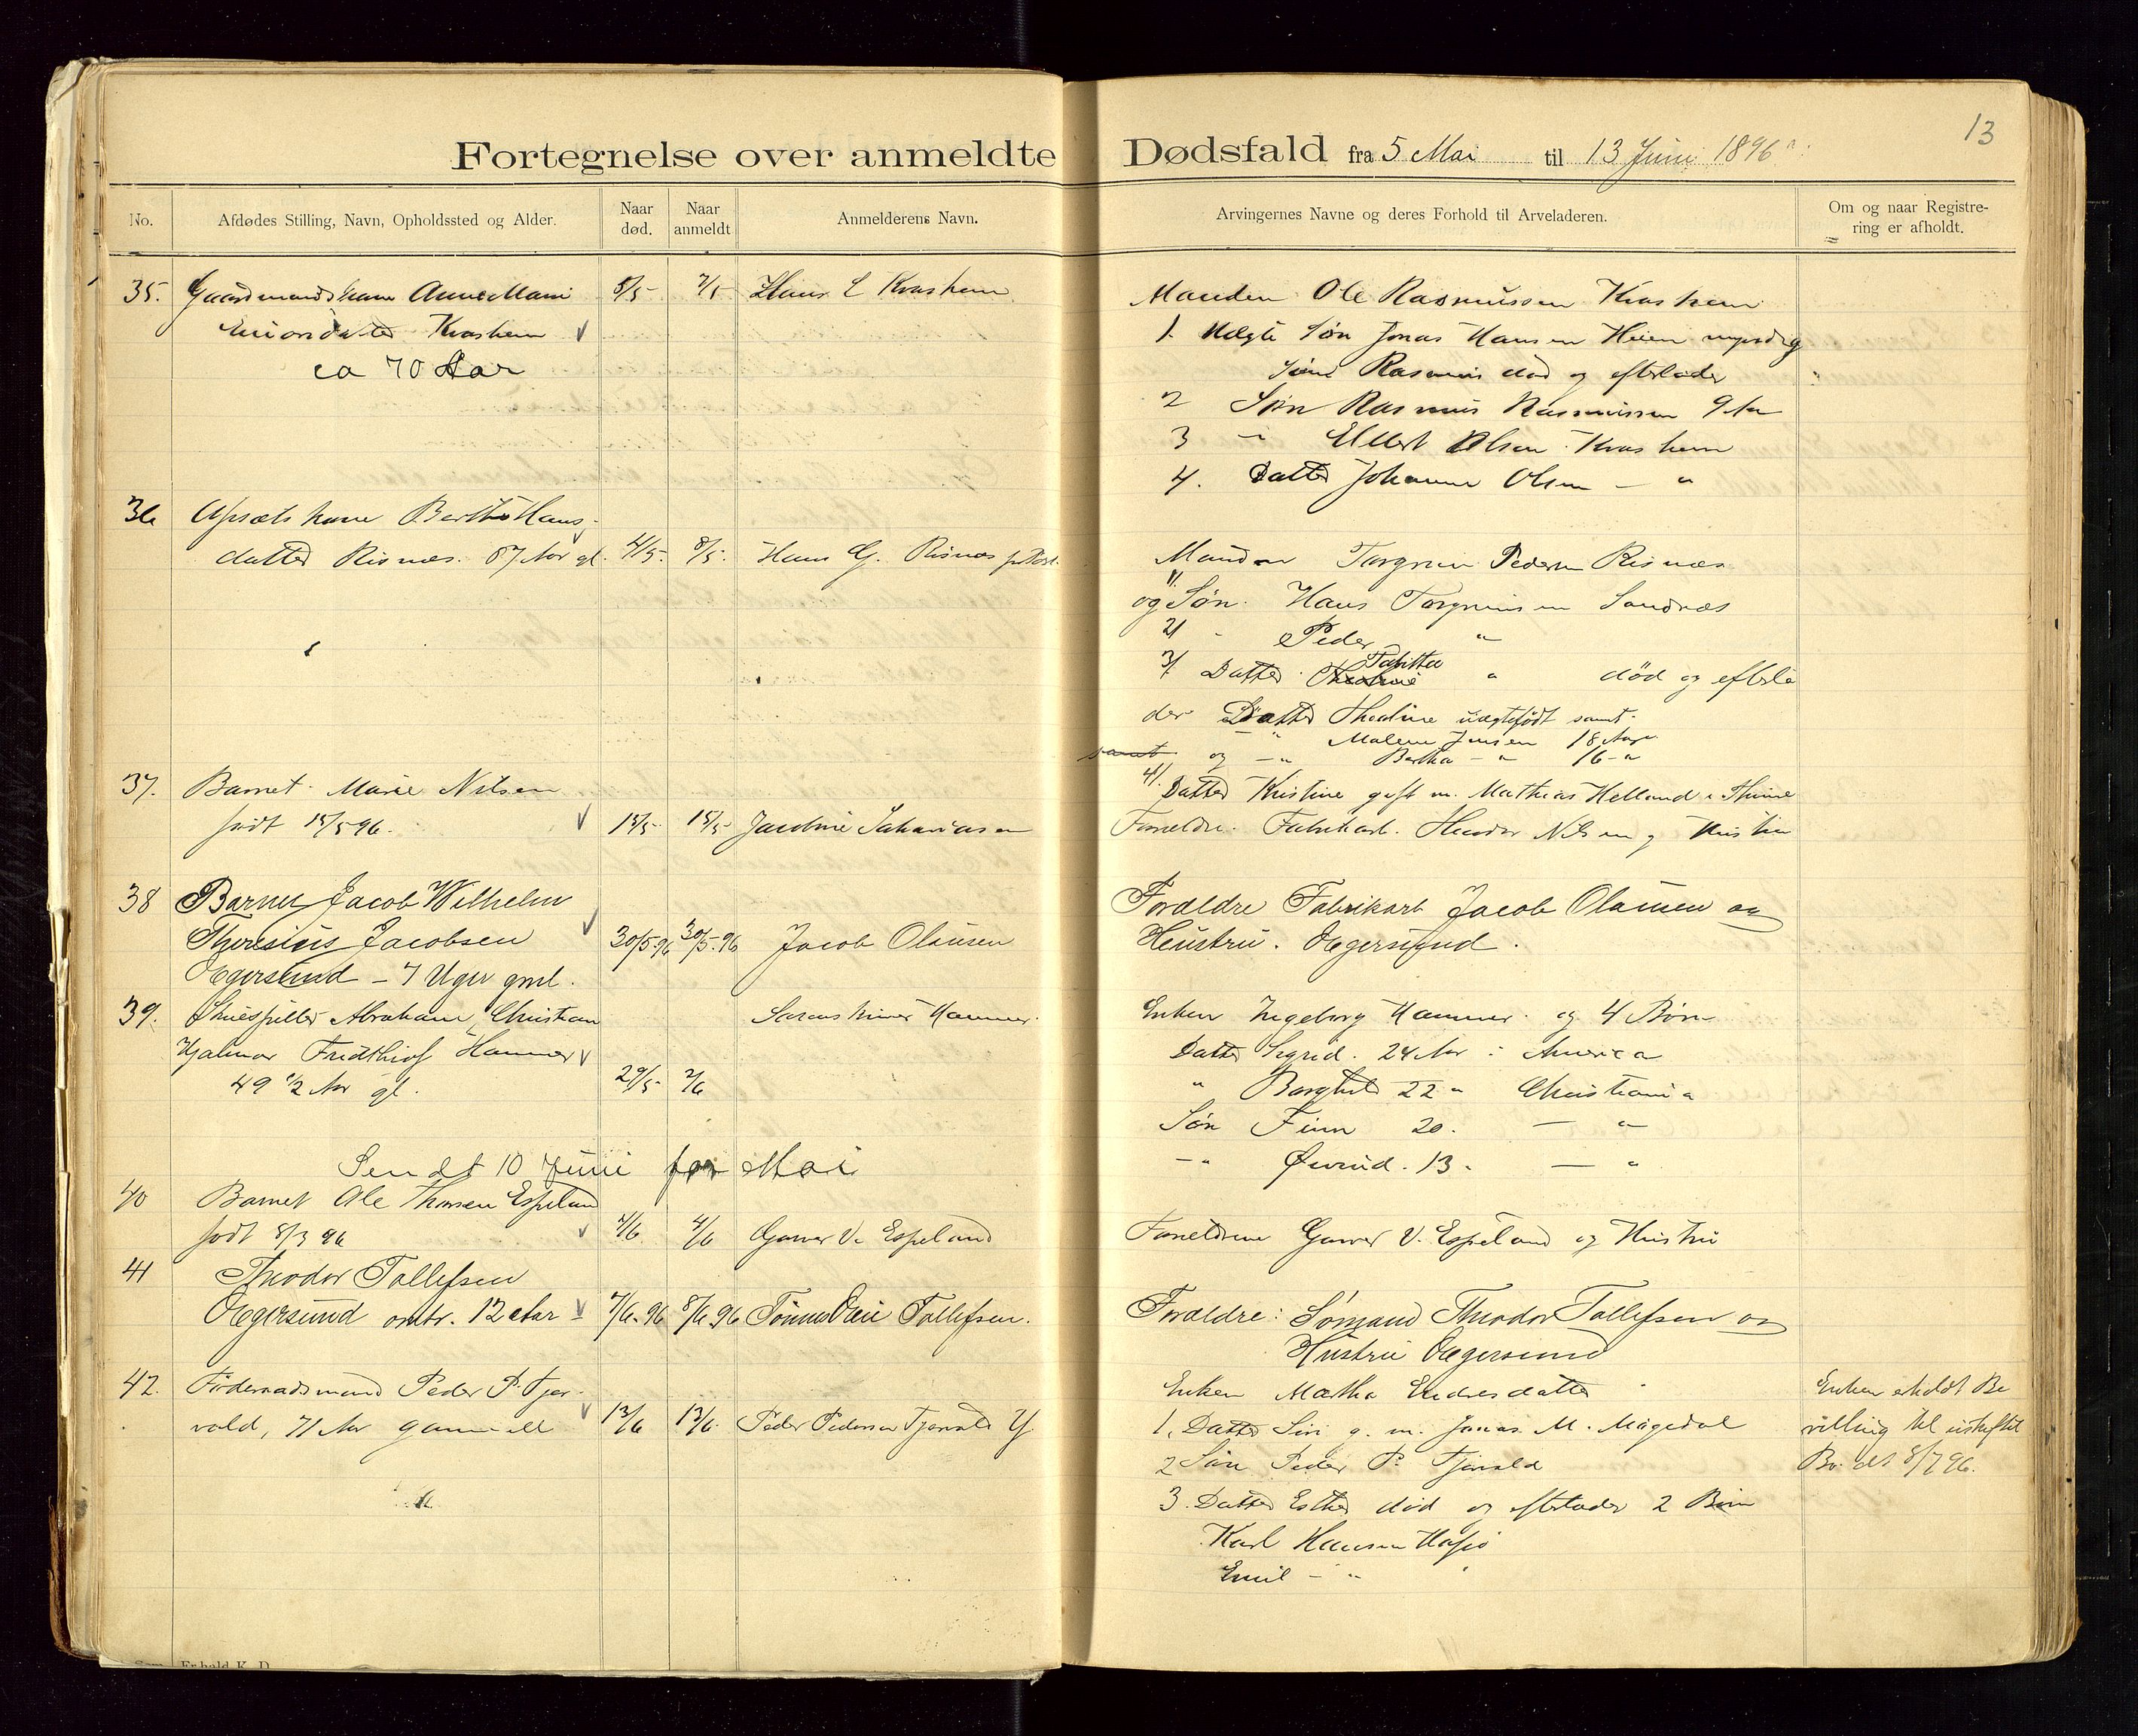 13
Fortegnelse over anmeldte Dødsfald fra 5 Mai til 13 Juni 1896
No.
Afdødes Stilling, Navn, Opholdssted og Alder.
Naar død.
Naar anmeldt
Anmelderens Navn.
Arvingernes Navne og deres Forhold til Arveladeren.
Om og naar Registre-
ring er afholdt.
35. Gaardmandskone Anne Marie
Kvashem
ca 70 Aar
5/5 7/5 Kvashem
Manden Ole Rasmussen Kvashem
1. Uægte Søn Jonas Hansen Heien myndig
Søn Rasmus død og efterlader
2 Søn Rasmus Rasmussen 9 Aar
3 " Ellert Olsen Kvashem
4. Datter Johanne Olsen — "
36 kone Berthe Hans-
datter Risnes. 87 Aar gl. 4/5. 8/5. Hans G. Risnes
Manden Torgrim Pedersen Risnes
og 1/ Søn Hans Torgrimsen Sandnes
2/ " Peder "
3/ Datter Tabitha " død og efterla
der Datter Thealine uægtefødt samt
" Malene Jensen 18 Aar
samt og — " Bertha — " 16 — "
4/. Datter Kristine gift m. Mathias Helland i Thime
37. Barnet Marie Nilsen
født 15/5 96. 15/5 15/5 Jacobine Sakariasen
Forældre. Fabrikarb. Theodor Nilsen og Hustru
38 Barnet Jacob Wilhelm
Theresius Jacobsen
Egersund – 7 Uger gml.
30/5.96 30/5.96 Jacob Olausen
Forældre Fabrikarb Jacob Olausen og
Hustru. Egersund.
39. Skuespiller Abraham Christian
Hjalmar Fridthiof Hammer
49 1/2 Aar gl.
29/5 2/6
Hammer.
Enken Ingeborg Hammer og 4 Børn
Datter Sigrid. 24 Aar i America
" Borghild 22 " Christiania
Søn Finn 20. — "
— " Øivind. 13. — "
Sendt 10 Juni for Mai
40 Barnet Ole Thorsen Espeland
født 8/3 96 4/6 Gawer V. Espeland
Forældrene Gawer V. Espeland og Hustru
41 Theodor Tollefsen
Egersund omtr. 12 Aar 7/6.96 8/6.96 Tollefsen.
Forældre: Sømand Theodor Tollefsen og
Hustru Egersund
42. Føderaadsmand Peder P. Tjør-
vold, 71 Aar gammel 13/6 13/6. Peder Pedersen
Enken Martha Endresdatter
1. Datter Siri g. m. Jonas M. Mågedal
2 Søn Peder P.
3. Datter Esther død og efterlader 2 Børn
Karl Hansen
Emil — "
Enken erholdt Be
villing til uskiftet
Bo det 8/7 96.